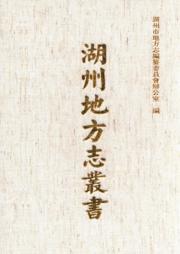 湖州市地方志編纂委員會辦公室 編
湖州地方志叢書